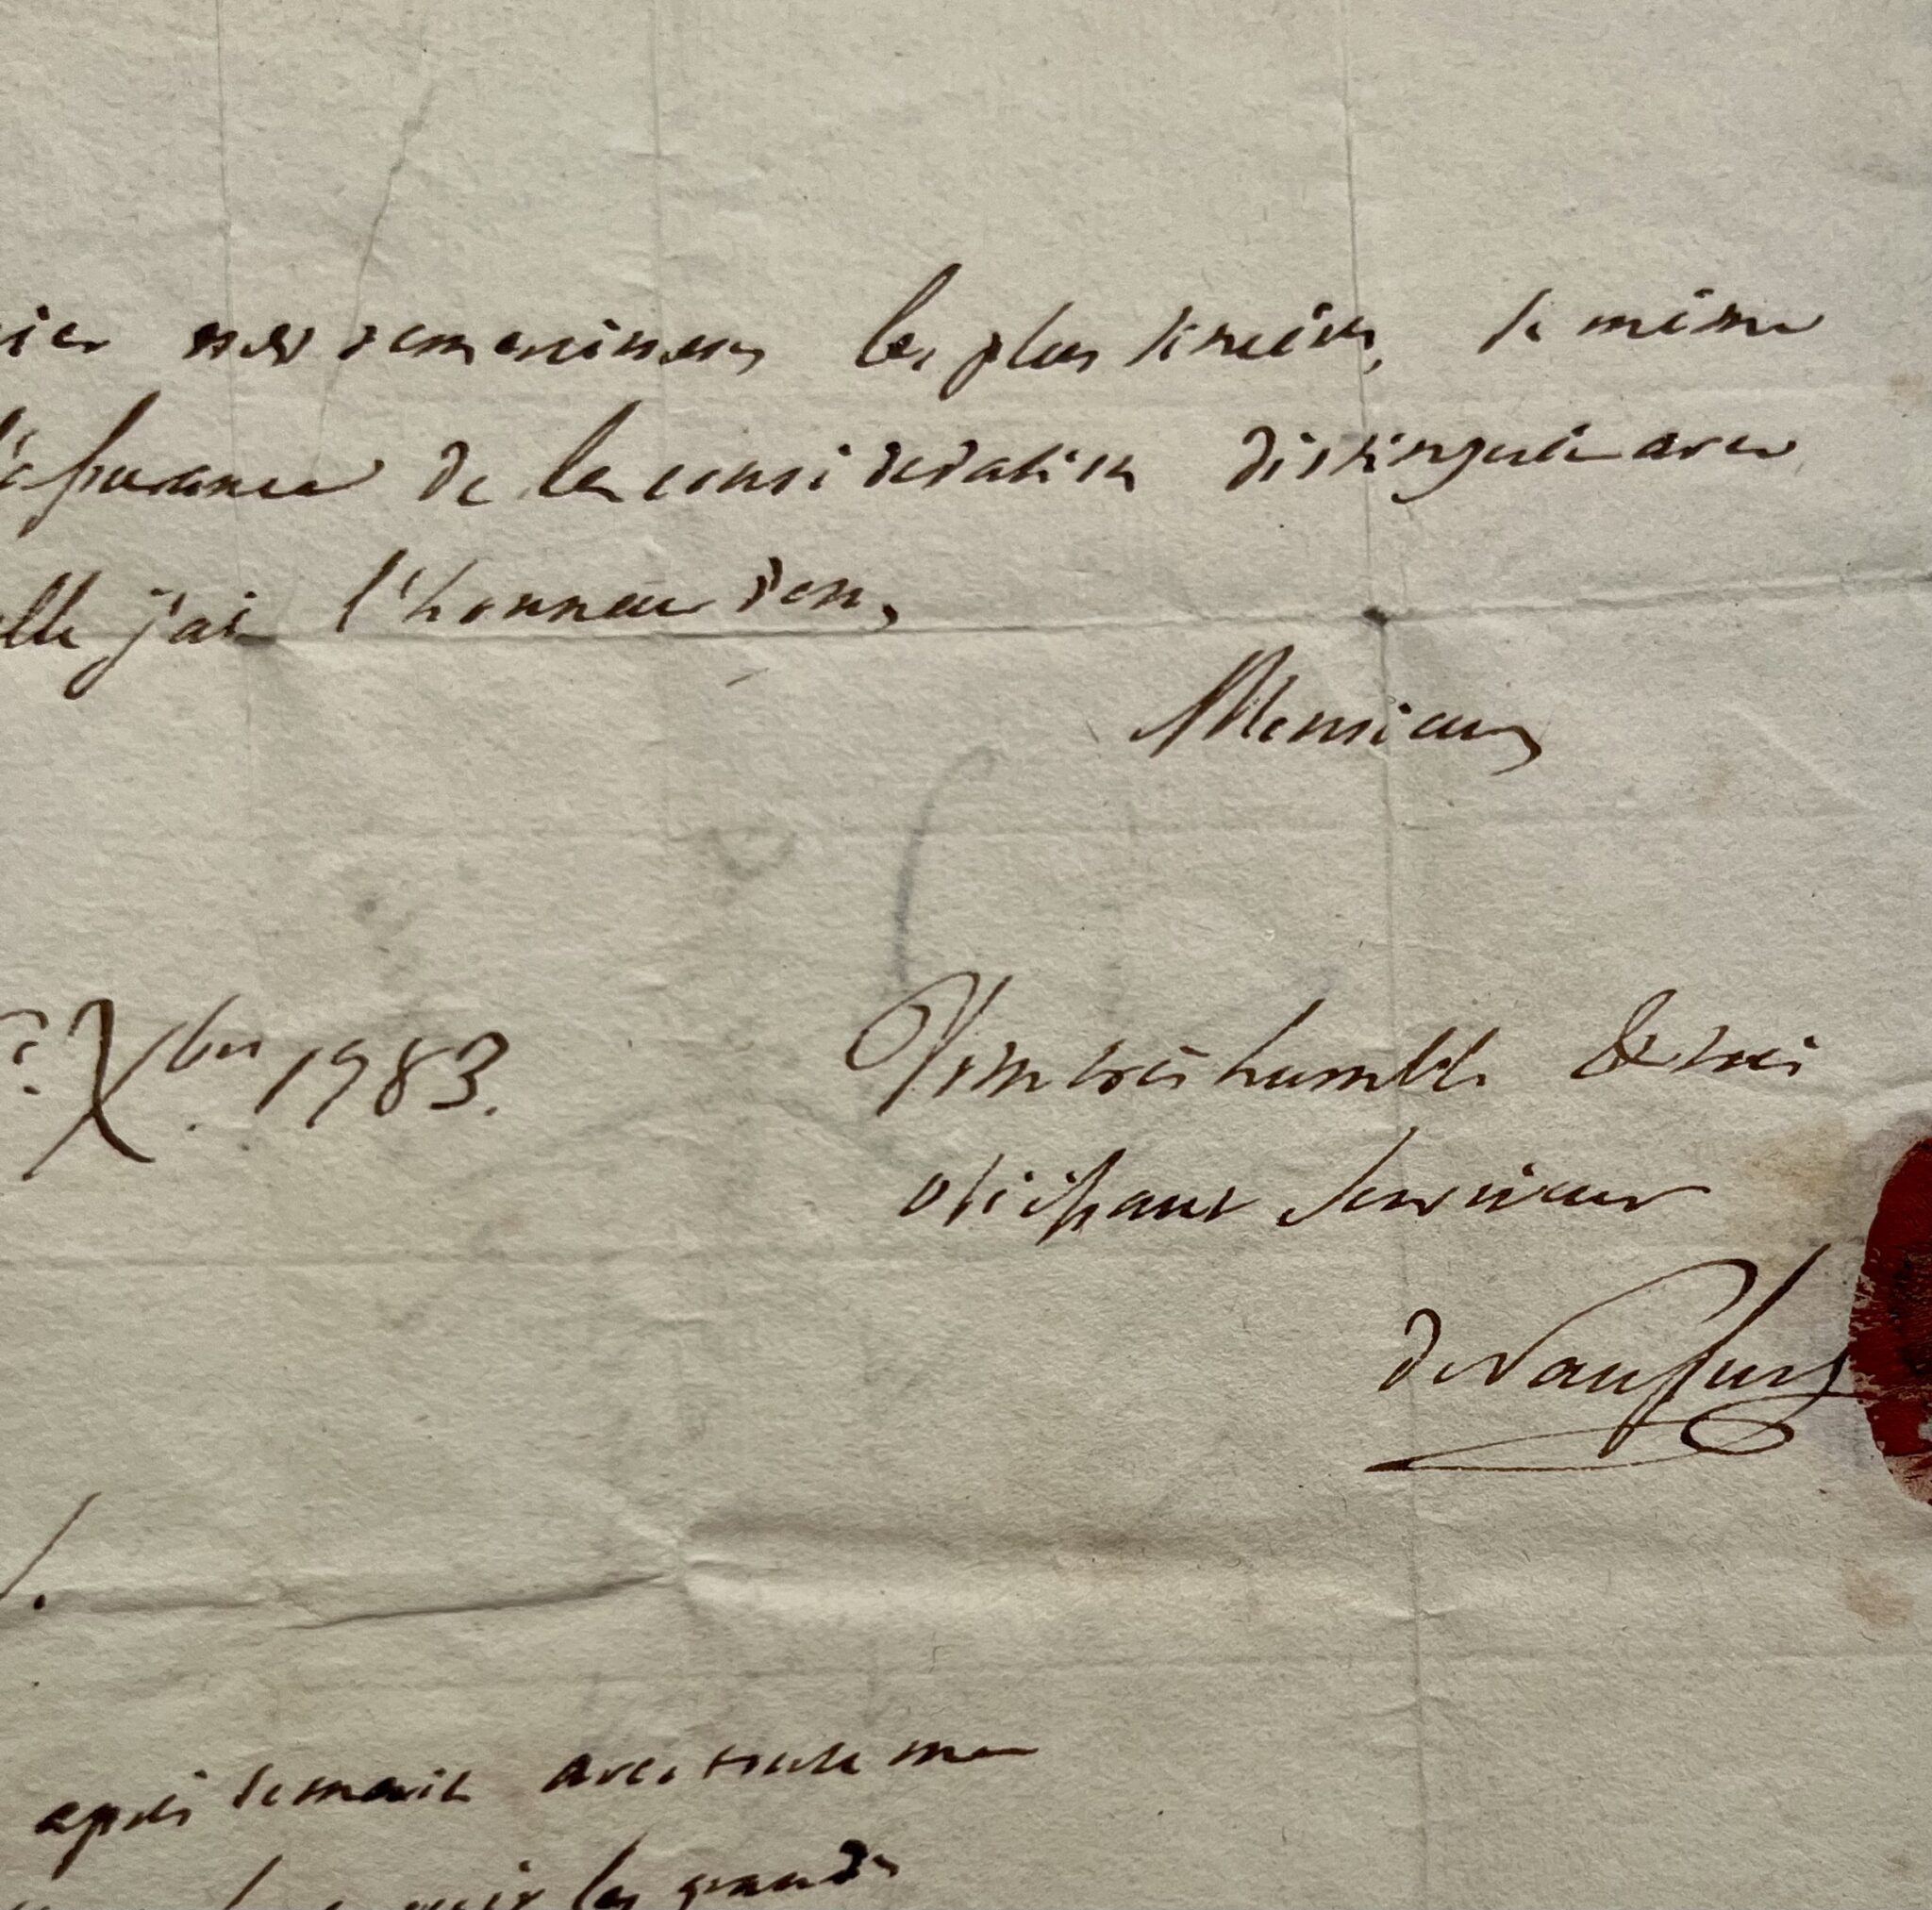 mes remerciemens les plus sincères, de même
l'assurance de la considération distinguée avec
elle j'ai l'honneur d'être,
Monsieur
Xbre 1783.
Votre très humble & très
obéissant Serviteur
après demain avec toute ma
voir les grands